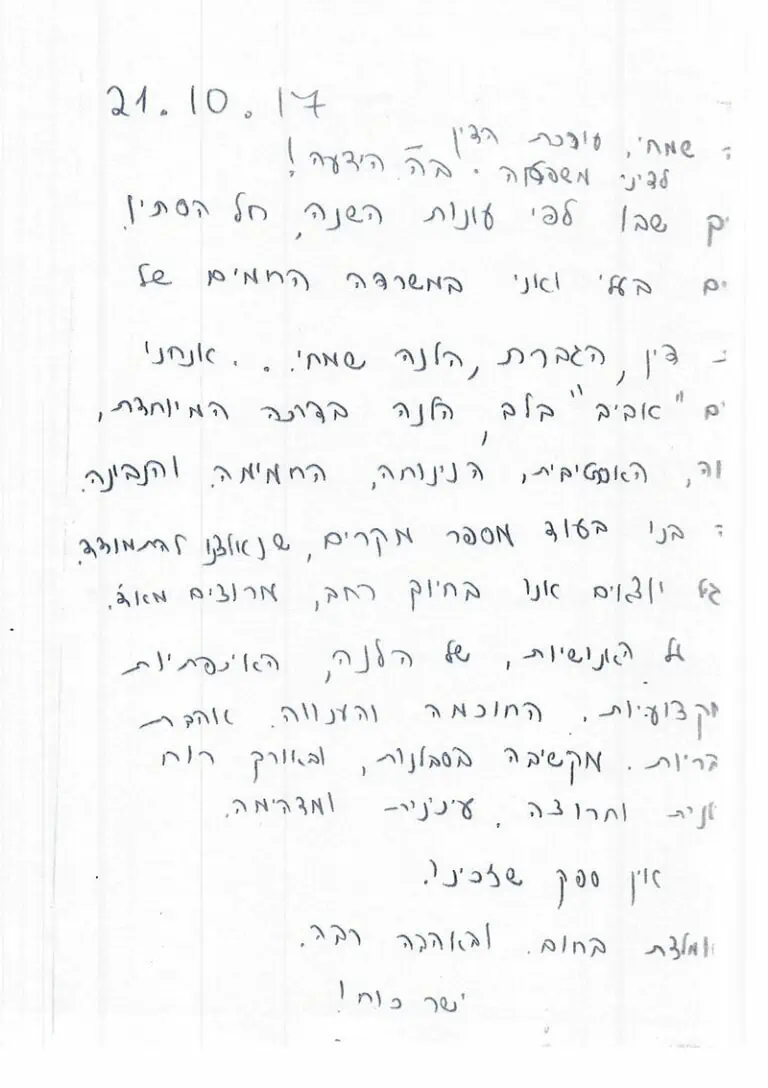 21.10.17
ה שמחי, עורכת הדין
לדיני משפחה. בה הידעה!
ק שבו לפי עונות השנה, חל הסתיו.
ים בעלי ואני במשרדה החמים של
דין, הגברת, הלנה שמחי... אנחנו
ים "אביב" בלב, הלנה בדרכה המיוחדת,
וה, האסרטיבית, הנינוחה, החמימה והנבינה.
ה בני בעוד מספר מקרים, שנאלצנו להתמודד.
יוצאים אנו בחיוך רחב, מרוצים מאוד.
על האנושיות, של הלנה, האיכפתיות
קצועיות, החוכמה והענווה. אוהבת
בריות. מקשיבה בסבלנות, ובאורך רוח
לנית וחרוצה, עיניינית ומדהימה.
אין ספק שזכינו.
ומלצת בחום. ובאהבה רבה.
ישר כוח!